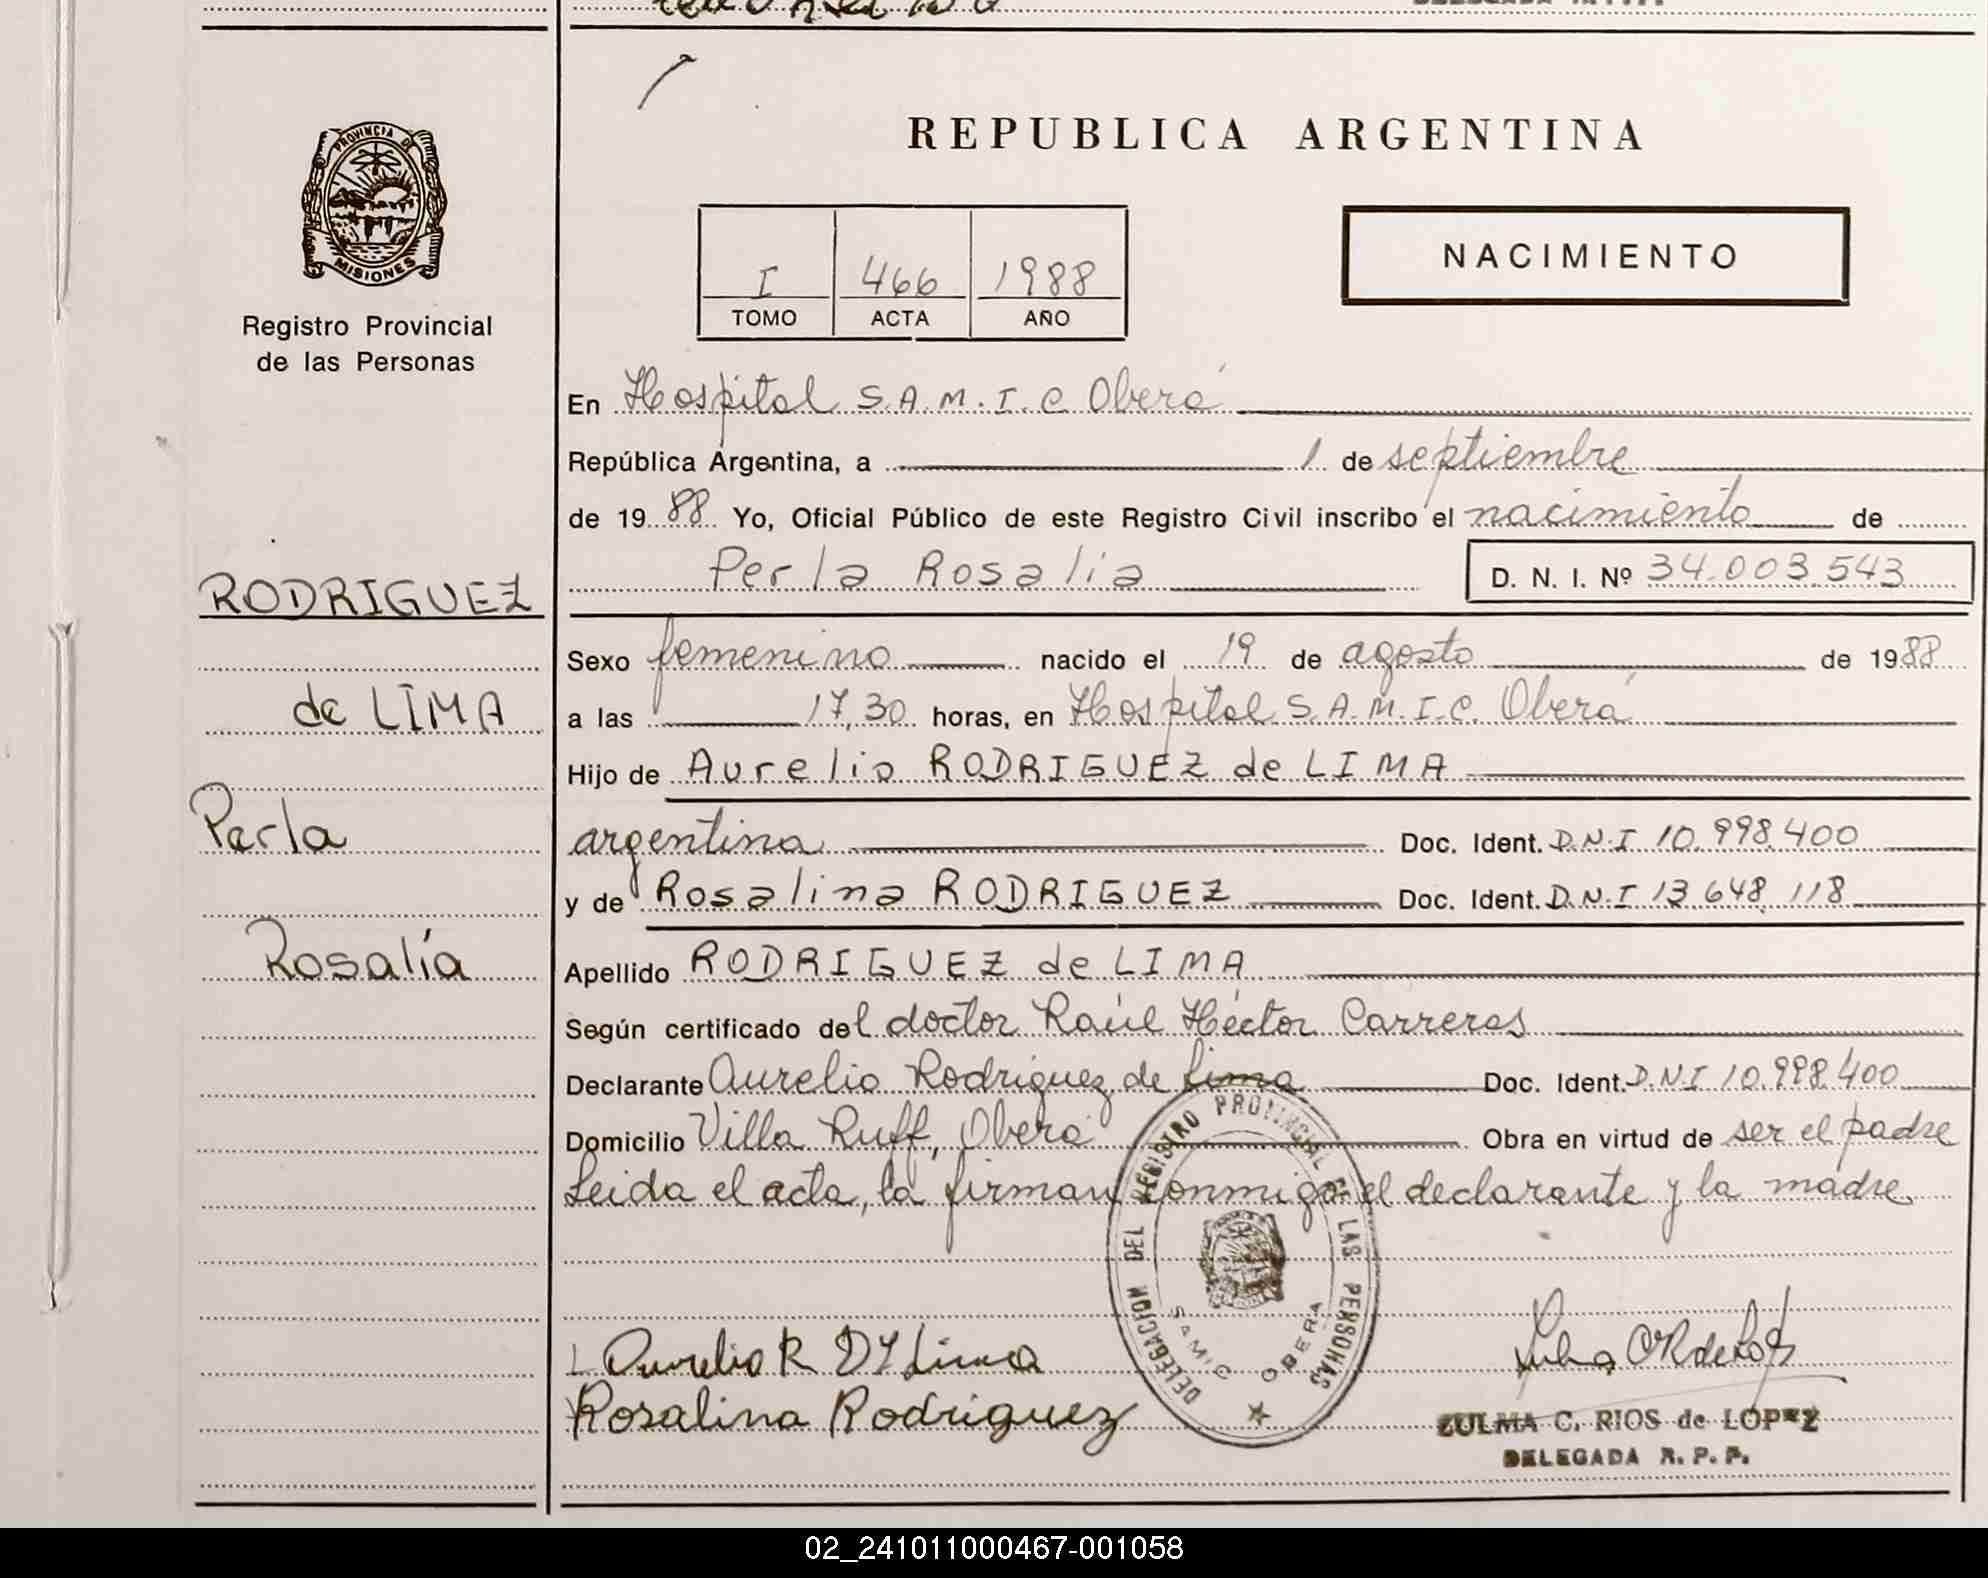 PROVINCIA DE
MISIONES
Registro Provincial
de las Personas
RODRIGUEZ
de LIMA
Perla
Rosalía
REPUBLICA ARGENTINA
I 466 1988
TOMO ACTA AÑO
NACIMIENTO
En Hospital S.A.M.I.C Oberá
República Argentina, a 1 de septiembre
de 1988 Yo, Oficial Público de este Registro Civil inscribo el nacimiento de
Perla Rosalía D. N. I. Nº 34.003.543
Sexo femenino nacido el 19 de agosto de 1988
a las 17,30 horas, en Hospital S.A.M.I.C. Oberá
Hijo de Aurelio RODRIGUEZ de LIMA
argentina Doc. Ident. D.N.I 10.998.400
y de Rosalina RODRIGUEZ Doc. Ident. D.N.I 13.648.118
Apellido RODRIGUEZ de LIMA
Según certificado del doctor Raúl Héctor Carreras
Declarante Aurelio Rodriguez de Lima Doc. Ident. D.N.I 10.998.400
Domicilio Villa Ruff, Oberá Obra en virtud de ser el padre
Leida el acta, la firman conmigo el declarante y la madre
DELEGACION DEL REGISTRO PROVINCIAL DE LAS PERSONAS
SAMIC OBERA
Aurelio R D Lima
Rosalina Rodriguez
ZULMA C. RIOS de LOPEZ
DELEGADA R. P. P.
02_241011000467-001058